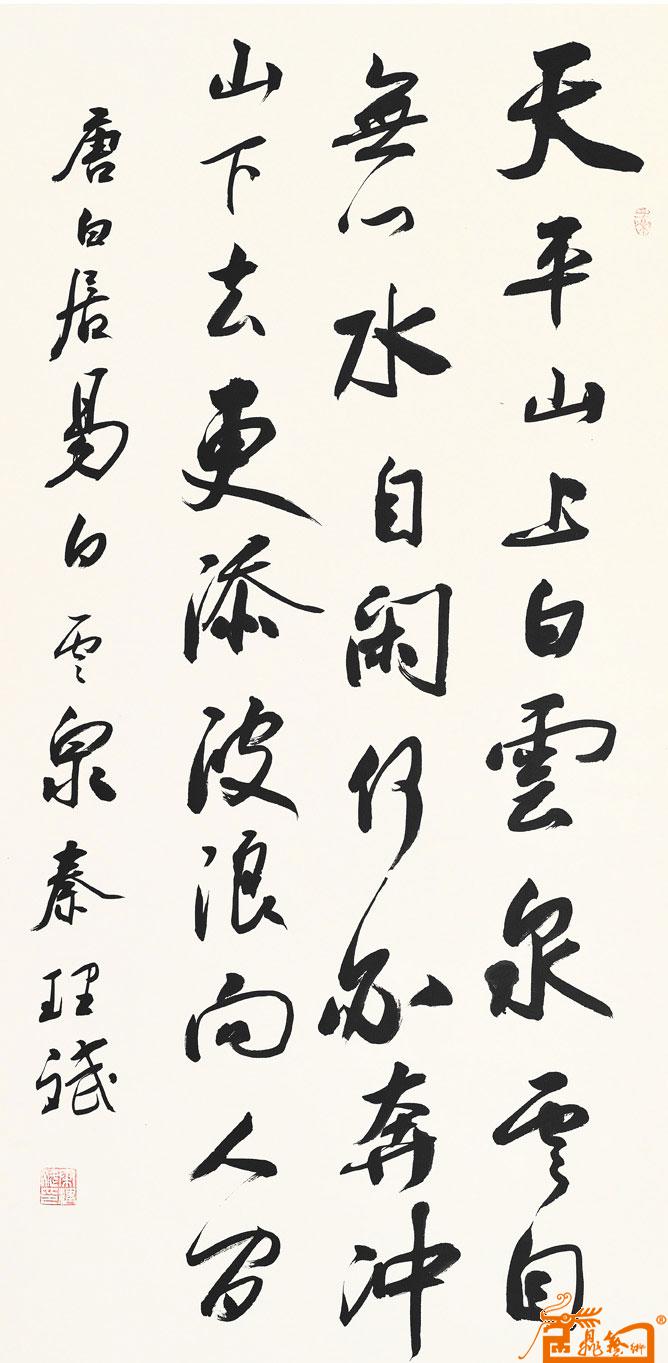 天平山上白雲泉云自
無心水自闲何必奔冲
山下去更添波浪向人间
唐白居易白云泉秦理斌